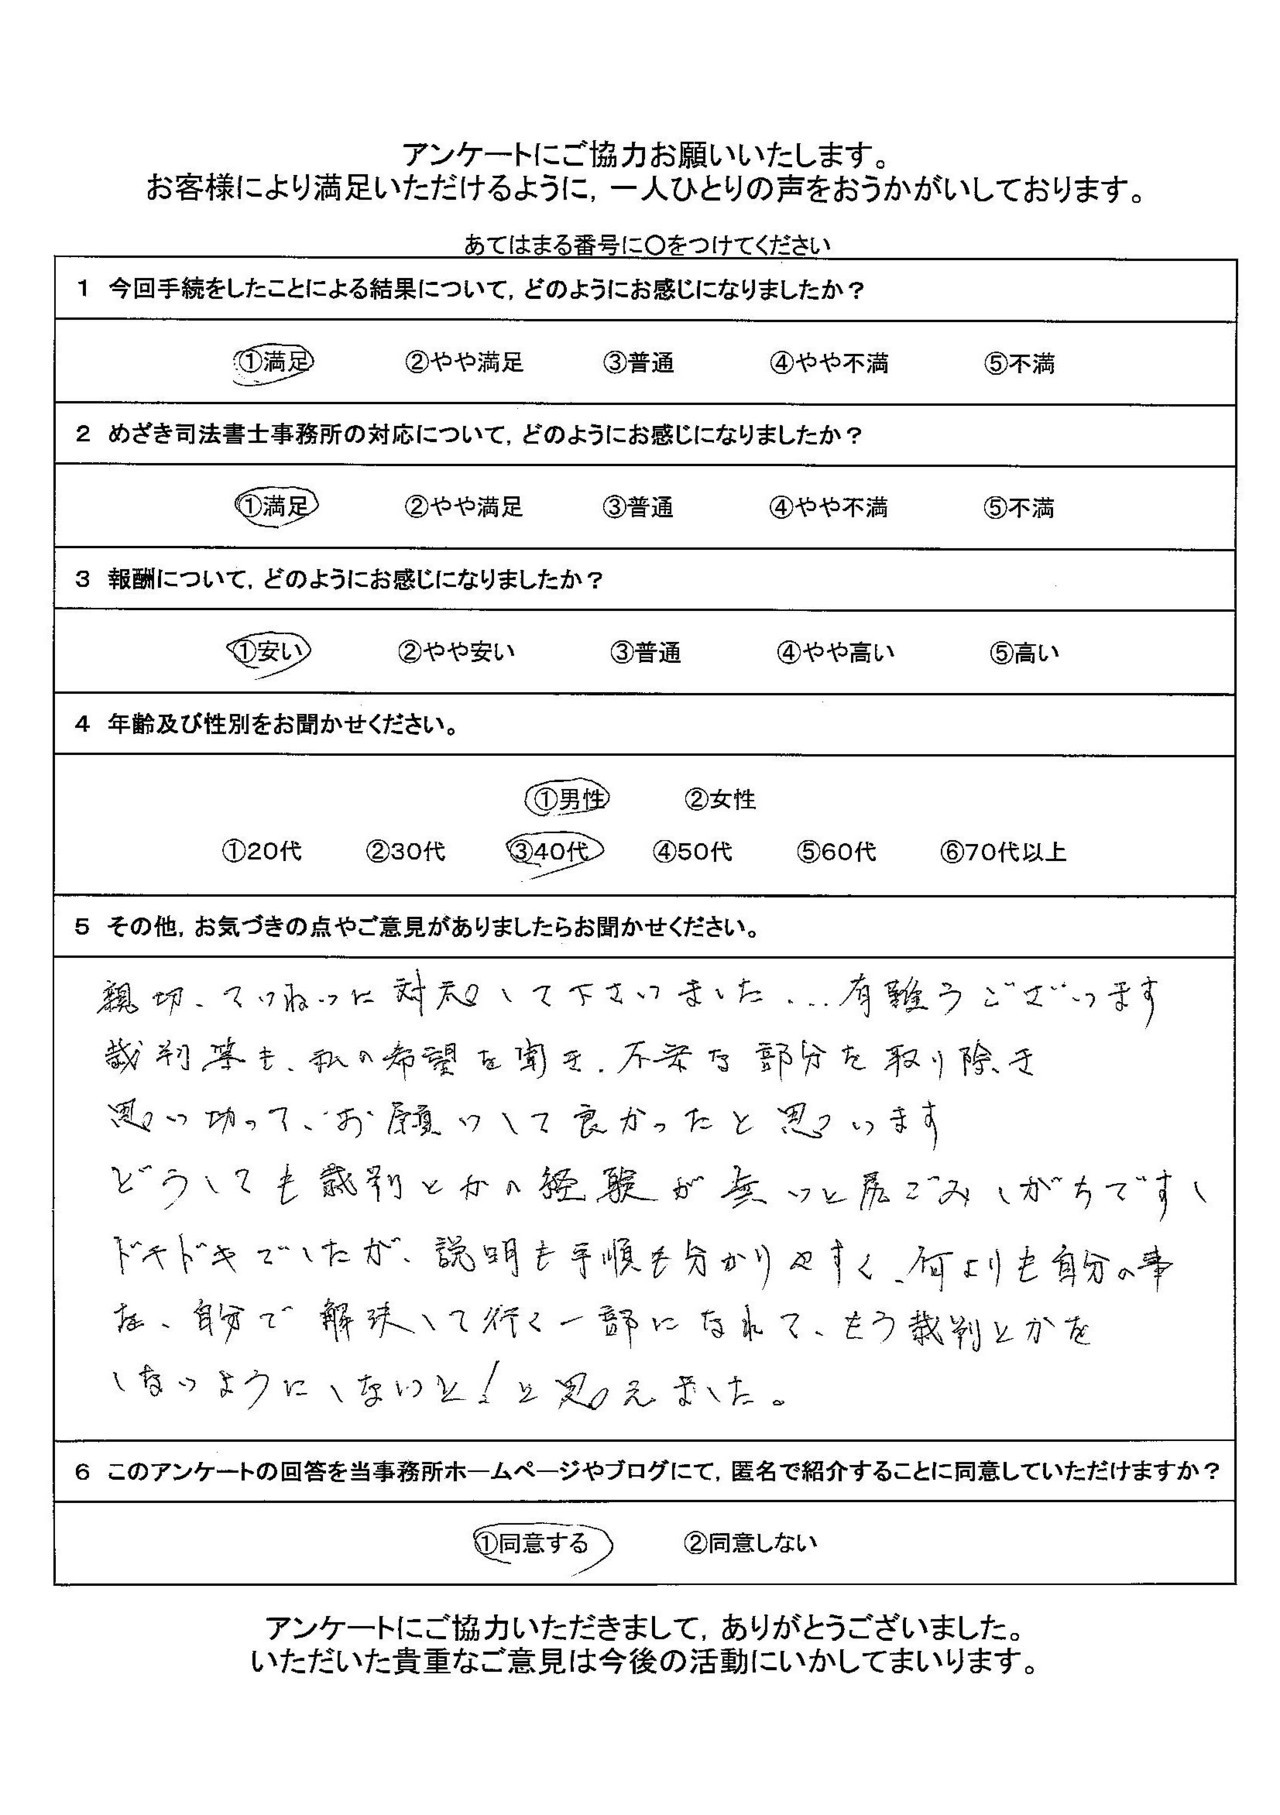 アンケートにご協力お願いいたします。
お客様により満足いただけるように，一人ひとりの声をおうかがいしております。
あてはまる番号に〇をつけてください
1 今回手続をしたことによる結果について，どのようにお感じになりましたか？
①満足 ②やや満足 ③普通 ④やや不満 ⑤不満
2 めざき司法書士事務所の対応について，どのようにお感じになりましたか？
①満足 ②やや満足 ③普通 ④やや不満 ⑤不満
3 報酬について，どのようにお感じになりましたか？
①安い ②やや安い ③普通 ④やや高い ⑤高い
4 年齢及び性別をお聞かせください。
①男性 ②女性
①20代 ②30代 ③40代 ④50代 ⑤60代 ⑥70代以上
5 その他，お気づきの点やご意見がありましたらお聞かせください。
親切、ていねいに対応して下さいました...有難うございます
裁判等も、私の希望を聞き、不安な部分を取り除き
思い切って、お願いして良かったと思います
どうしても裁判とかの経験が無いと尻ごみしがちですし
ドキドキでしたが、説明も手順も分かりやすく、何よりも自分の事
を、自分で解決して行く一部になれて、もう裁判とかを
しないようにしないと！と思えました。
6 このアンケートの回答を当事務所ホームページやブログにて，匿名で紹介することに同意していただけますか？
①同意する ②同意しない
アンケートにご協力いただきまして，ありがとうございました。
いただいた貴重なご意見は今後の活動にいかしてまいります。